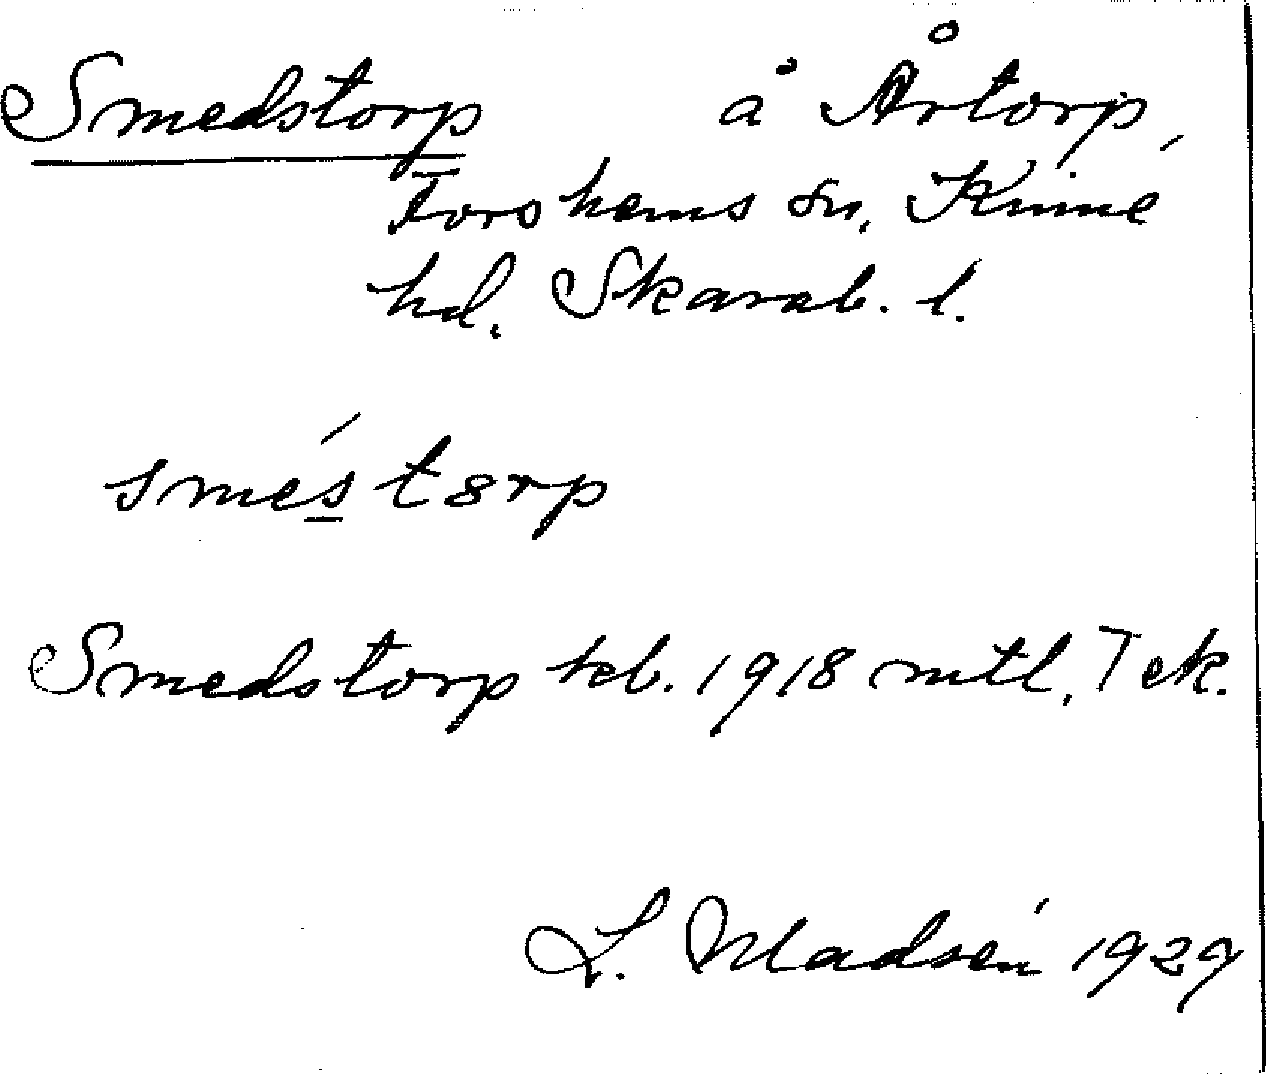 Smedstorp å Årtorp,
Forshems sn, Kinne
hd. Skarab. l.
smés̲tørp
Smedstorp kb. 1918 mtl, Tek.
L. Madsén 1929